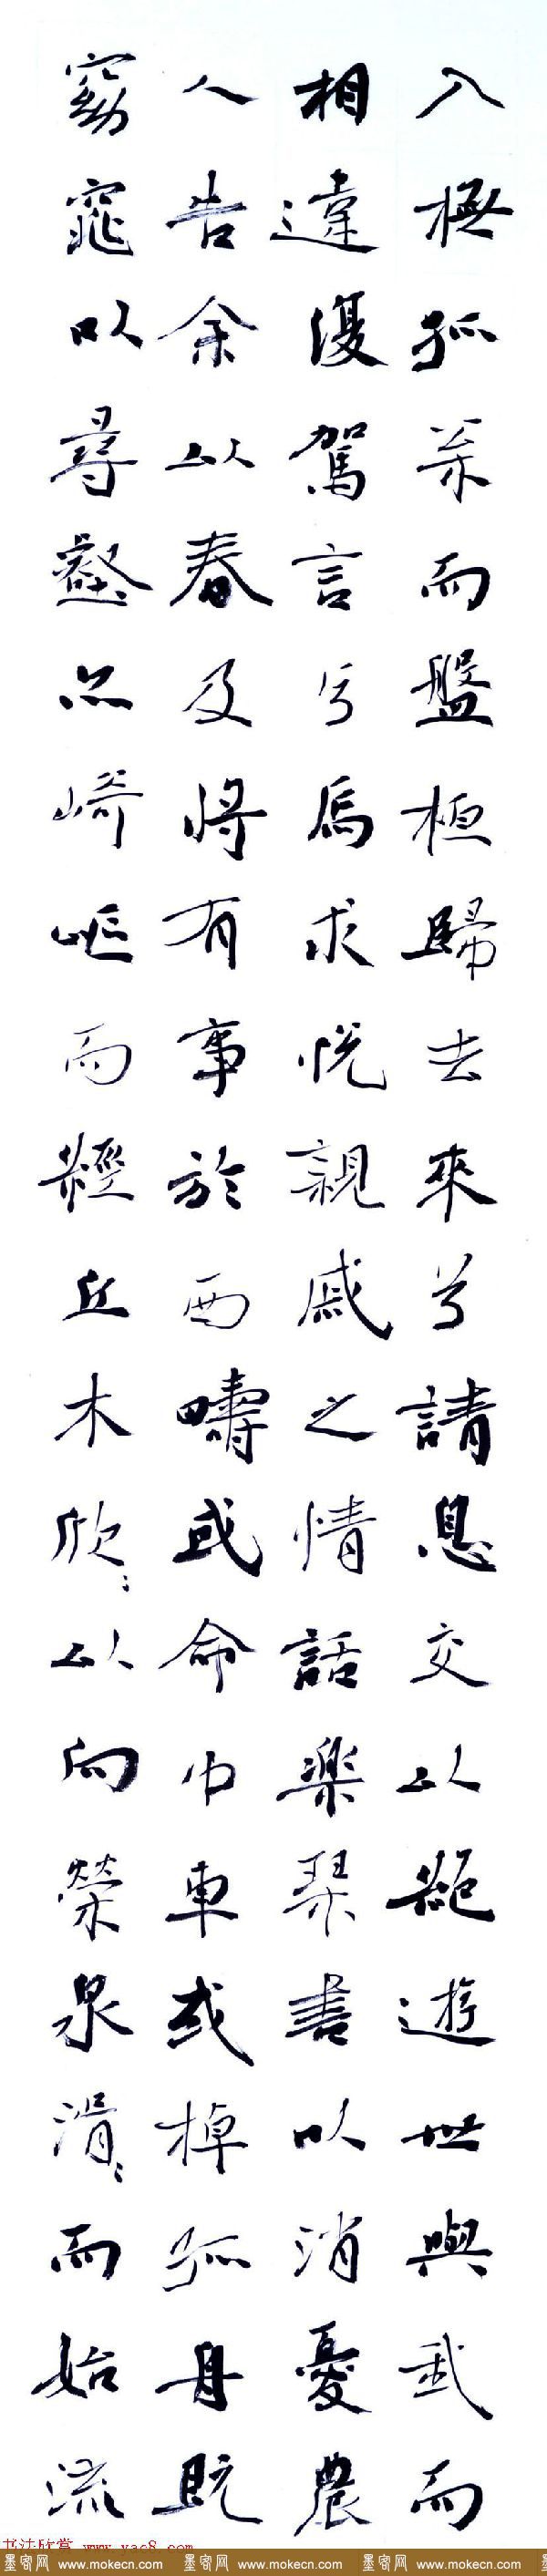 入撫孤松而盤桓歸去來兮請息交以絕遊世與我而
相違復駕言兮焉求悅親戚之情話樂琴書以消憂農
人告余以春及將有事於西疇或命巾車或棹孤舟既
窈窕以尋壑亦崎嶇而經丘木欣〻以向榮泉涓〻而始流
书法欣赏 www.yac8.com
墨客网 www.mokecn.com 墨客网 www.mokecn.com 墨客网 www.mokecn.com 墨客网 www.mokecn.com